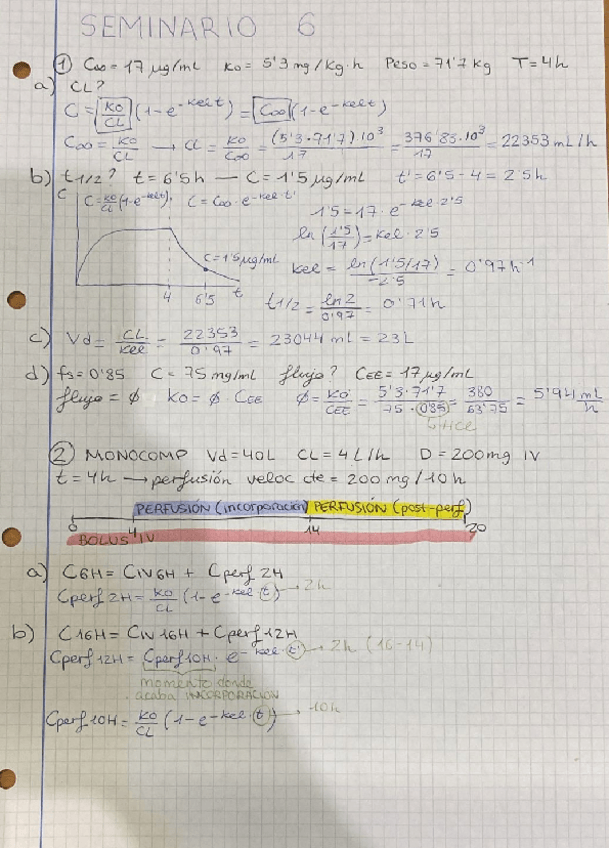 SEMINARIO 6
① C∞ = 17 μg/mL K0 = 5'3 mg/Kg·h Peso = 71'7 kg T = 4h
a) CL?
C = K0/CL (1-e^-kel t) = C∞ (1-e^-kel t)
C∞ = K0/CL → CL = K0/C∞ = (5'3·71'7)10³/17 = 376'85·10³/17 = 22353 mL/h
b) t1/2? t = 6'5h — C = 1'5 μg/mL t' = 6'5 - 4 = 2'5h
C C = K0/CL (1-e^-kel t) C = C∞ · e^-kel·t' 1'5 = 17 · e^-kel·2'5
ln(1'5/17) = kel · 2'5
C = 1'5 μg/mL kel = ln(1'5/17)/-2'5 = 0'97 h^-1
4 6'5 t t1/2 = ln 2/0'97 = 0'71h
c) Vd = CL/kel = 22353/0'97 = 23044 mL = 23L
d) fs = 0'85 C = 75 mg/mL flujo? CEE = 17 μg/mL
flujo = ϕ K0 = ϕ · CEE ϕ = K0/CEE = 5'3·71'7/75·0'85 = 380/63'75 = 5'94 mL/h
② MONOCOMP Vd = 40L CL = 4L/h D = 200mg IV
t = 4h → perfusión veloc cte = 200 mg/10h
PERFUSIÓN (incorporación) PERFUSIÓN (post-perf)
0 4 14 20
BOLUS IV
a) C6H = CIV 6H + Cperf 2H
Cperf 2H = K0/CL (1-e^-kel·t) → 2h
b) C16H = CIV 16H + Cperf 12H
Cperf 12H = Cperf 10H · e^-kel·t' → 2h (16-14)
momento donde
acaba INCORPORACIÓN
Cperf 10H = K0/CL (1-e^-kel·t) → 10h